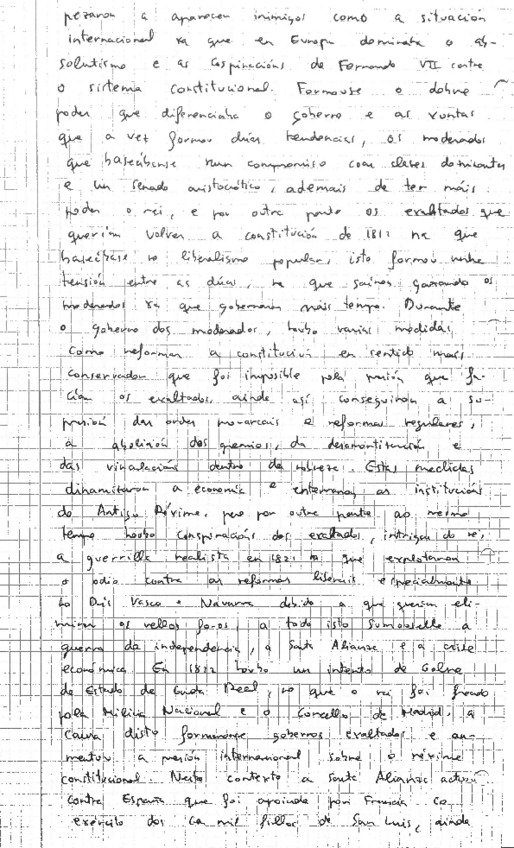 pezaron a aparecer inimigos como a situación
internacional xa que en Europa dominaba o ab-
solutismo e as conspiracións de Fernando VII contra
o sistema constitucional. Formouse o dobre
poder que diferenciaba o goberno e as xuntas
que a vez formou dúas tendencias, os moderados
que basábanse nun compromiso coas clases dominantes
e un senado aristocrático, ademais de ter máis
poder o rei, e por outra parte os exaltados que
querían volver a constitución de 1812 na que
basábase no liberalismo popular, isto formou unha
tensión entre as dúas, na que saíron gañando os
moderados xa que gobernaron máis tempo. Durante
o goberno dos moderados, houbo varias medidas
como reformar a constitución en sentido máis
conservador que foi imposible pola presión que fa-
cían os exaltados, aínda así conseguiron a su-
presión das ordes monacais e reformar regulares,
a abolición dos gremios, da desamortización e
das vinculacións dentro da nobreza. Estas medidas
dinamitaron a economía e enterraron as institucións
do Antigo Réxime, pero por outra parte ao mesmo
tempo houbo conspiracións dos exaltados, intrigas do rei,
a guerrilla realista en 1821 na que explotaron
o odio contra as reformas liberais especialmente
no País Vasco e Navarra debido a que querían eli-
minar os vellos foros, a todo isto sumouselle a
guerra da independencia, a Santa Alianza e a crise
económica. En 1822 houbo un intento de Golpe
de Estado da Garda Real, no que o rei foi freado
pola Milicia Nacional e o Concello de Madrid, a
causa disto formáronse gobernos exaltados e au-
mentou a presión internacional sobre o réxime
constitucional. Neste contexto a Santa Alianza actuou
contra España que foi apoiada por Francia co
exército dos Cen mil fillos de San Luis, aínda